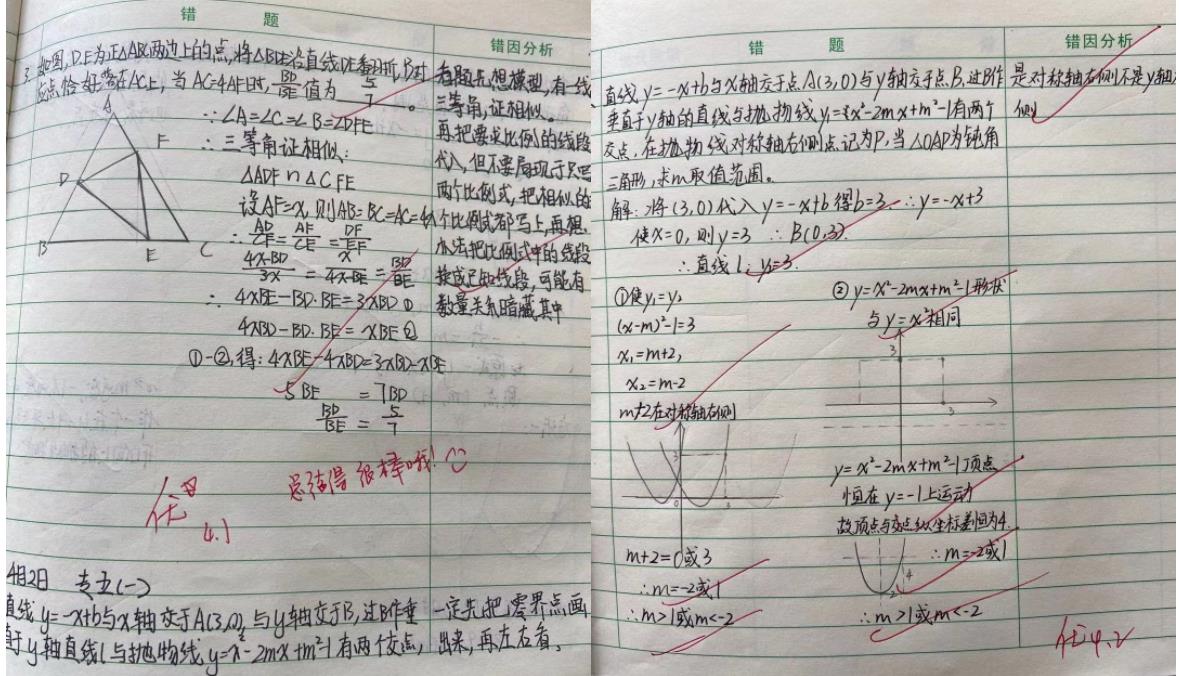 错 题
错因分析
3. 如图,D.E为正△ABC两边上的点,将△BDE沿直线DE翻折,B对
应点恰好落在AC上,当AC=4AF时,BD/BE值为 5/7 。
∵∠A=∠C=∠B=∠DFE
∴三等角证相似:
△ADF∽△CFE
设AF=x,则AB=BC=AC=4x
∴AD/CF=AF/CE=DF/EF
4x-BD/3x=x/4x-BE=BD/BE
∴4xBE-BD·BE=3xBD①
4xBD-BD·BE=xBE②
①-②,得:4xBE-4xBD=3xBD-xBE
5BE=7BD
BD/BE=5/7
A
F
D
B
E
C
看题先想模型,有一线
三等角,证相似。
再把要求比例的线段
代入,但不要局限于只写
两个比例式,把相似的
个比例式都写上,再想
办法把比例式中的线段
换成已知线段,可能有
数量关系暗藏其中
总结得很棒哦!
优
4.1
4月2日 专五(一)
直线y=-x+b与x轴交于A(3,0),与y轴交于B,过B作垂
直于y轴直线l与抛物线y=x²-2mx+m²-1有两个交点,
一定先把零界点画
出来,再左右看。
错 题
错因分析
直线y=-x+b与x轴交于点A(3,0)与y轴交于点B,过B作
垂直于y轴的直线与抛物线y=x²-2mx+m²-1有两个
交点,在抛物线对称轴右侧点记为P,当△OAP为钝角
三角形,求m取值范围。
是对称轴右侧不是y轴右
侧
解:将(3,0)代入y=-x+b得b=3,∴y=-x+3
使x=0,则y=3 ∴B(0,3)
∴直线l:y₂=3.
①使y₁=y₂
(x-m)²-1=3
x₁=m+2,
x₂=m-2
m+2在对称轴右侧
3
0
3
m+2=0或3
∴m=-2或1
∴m>1或m<-2
②y=x²-2mx+m²-1形状
与y=x²相同
3
3
y=x²-2mx+m²-1顶点
恒在y=-1上运动
故顶点与交点纵坐标差恒为4.
4
2
∴m=-2或1
∴m>1或m<-2
优4.2